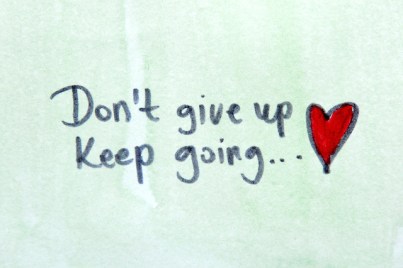 Don't give up
Keep going...